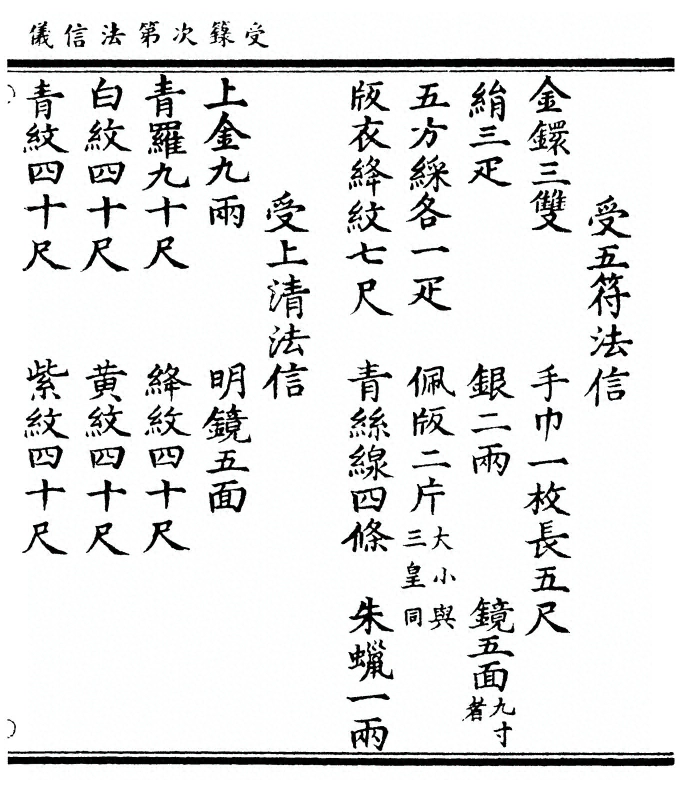 受籙次第法信儀
受五符法信
金鐶三雙 手巾一枚長五尺
絹三疋 銀二兩 鏡五面九寸者
五方綵各一疋 佩版二片大小與三皇同
版衣絳紋七尺 青絲線四條 朱蠟一兩
受上清法信
上金九兩 明鏡五面
青羅九十尺 絳紋四十尺
白紋四十尺 黃紋四十尺
青紋四十尺 紫紋四十尺